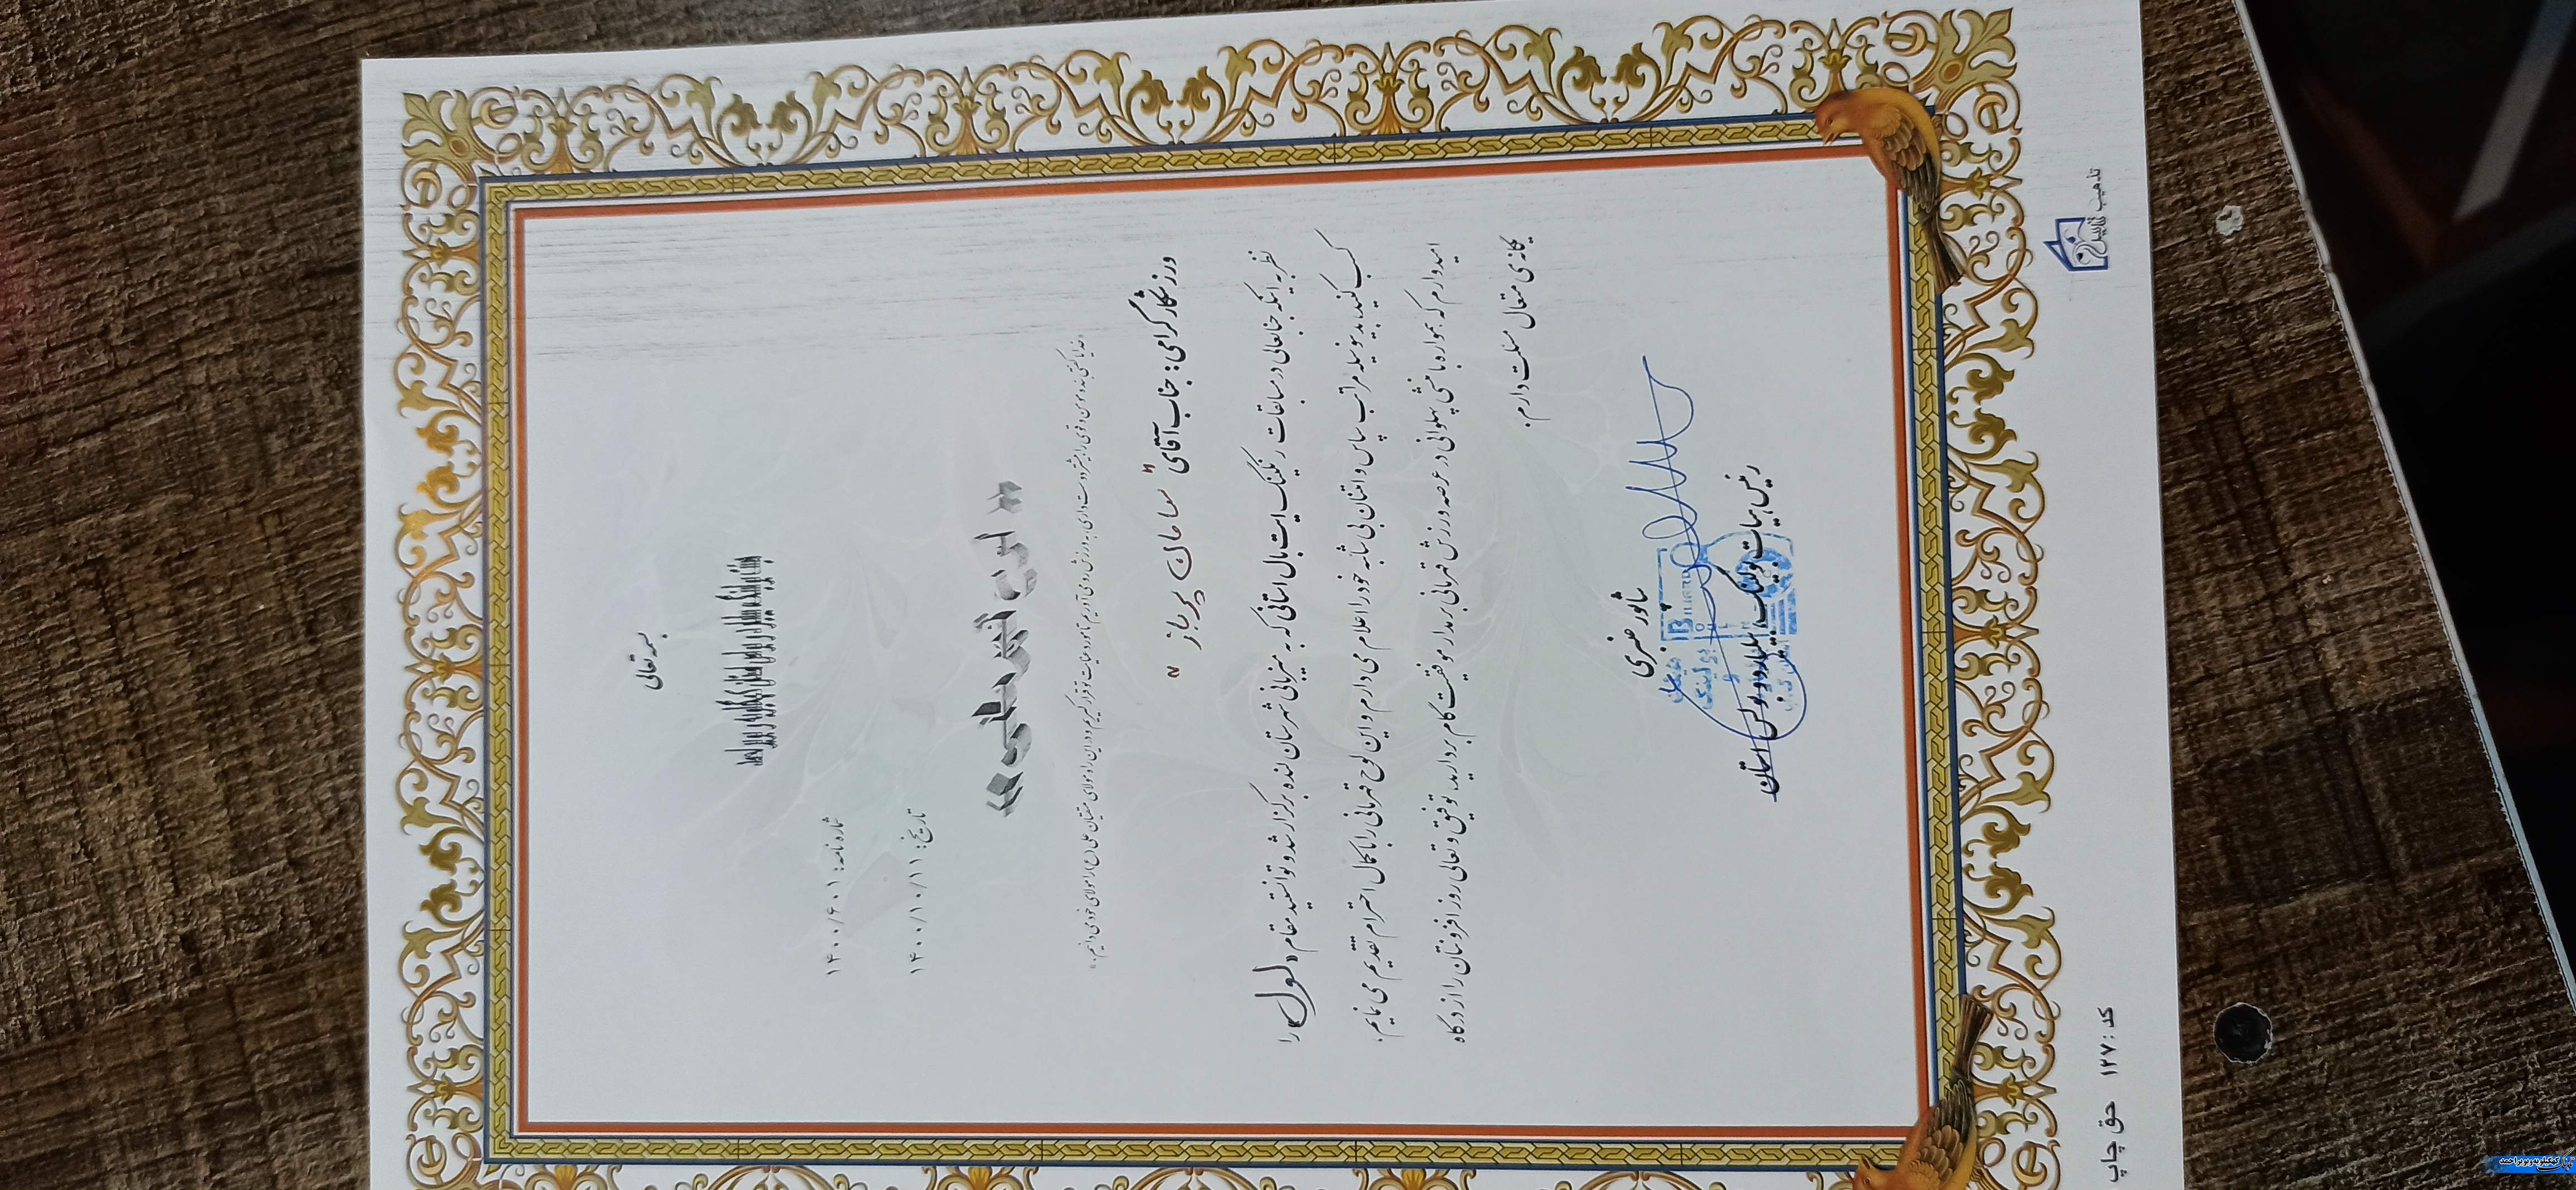 بسمه تعالی
هیئت بولینگ، بیلیارد و بولس استان کهگیلویه و بویراحمد
شماره نامه: ۱۴۰۰/۶۰۱
تاریخ: ۱۴۰۰/۱۰/۱۱
«خدایا گفتی بنده مومن و قوی را بیشتر دوست داری، به ورزش رو می آوریم تا مورد عنایت تو قرار گیریم و در این راه مولای متقیان علی (ع) را مولای خود می دانیم.»
ورزشکار گرامی: جناب آقای "سامان پرباز"
نظر به اینکه جنابعالی در مسابقات رنکینگ ایت بال استانی که به میزبانی شهرستان لنده برگزار شد و توانستید مقام «اول» را
کسب کنید، بدینوسیله مراتب سپاس و امتنان بی شائبه خود را اعلام می دارم و این لوح قهرمانی را با کمال احترام تقدیم می نمایم،
امیدوارم که همواره با منشی پهلوانی در عرصه ورزش قهرمانی بر مدار موفقیت گام بردارید، توفیق و تعالی روز افزونتان را از درگاه
یگانه ی متعال مسئلت دارم.
شاپور عنبری
هیئت
بولینگ
و
BILIARD
رئیس هیات بولینگ، بیلیارد و بولس استان
تذهیب
کد: ۱۲۷ حق چاپ